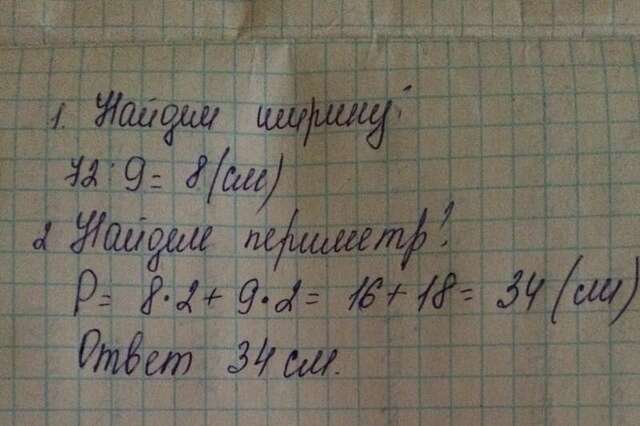 1. Найдем ширину:
72 : 9 = 8 (см)
2 Найдем периметр:
P = 8 · 2 + 9 · 2 = 16 + 18 = 34 (см)
Ответ 34 см.